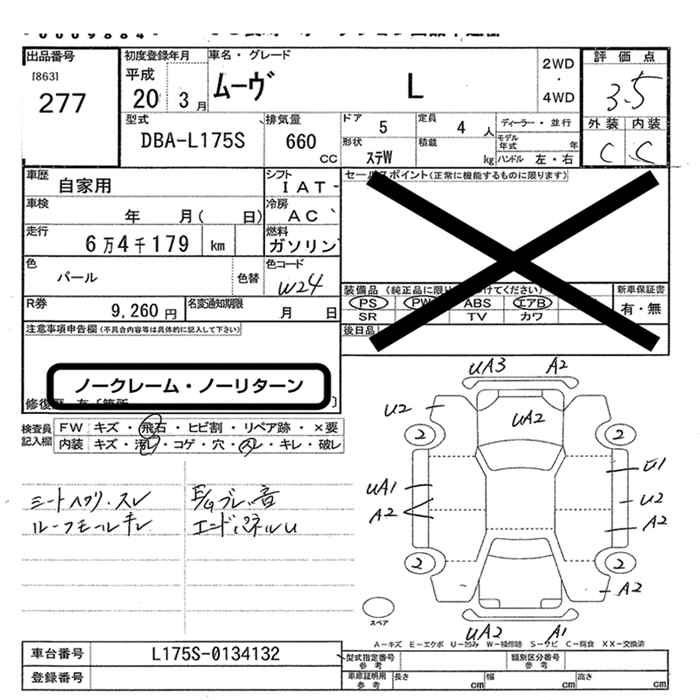 出品番号
[863]
277
初度登録年月
平成
20 3 月
車名・グレード
ムーヴ L
2WD
・
4WD
評価点
3.5
外装 内装
C C
型式
DBA-L175S
排気量
660
CC
ドア
5
定員
4 人
ディーラー・並行
モデル年式 年
形状
ステW
積載
kg
ハンドル 左・右
車歴
自家用
シフト
IAT
車検
年 月( 日)
冷房
AC
走行
6万4千179 km
燃料
ガソリン
色
パール
色替
色コード
W24
R券
9,260 円
名変通知期限
月 日
セールスポイント(正常に機能するものに限ります)
装備品
PS PW ABS エアB
SR TV カワ
後日品
新車保証書
有・無
注意事項申告欄(不具合内容等は具体的に記入して下さい)
ノークレーム・ノーリターン
検査員記入欄
FW キズ・飛石・ヒビ割・リペア跡・×要
内装 キズ・汚レ・コゲ・穴・キレ・破レ
シートヘタリ・スレ
ルーフモールキレ
エンドパネルU
UA3 A2
U2
UA2
2 2
UA1
A2
U1
U2
A2
2 2
A2
UA2 A1
スペア
A−キズ E−エクボ U−凹み S−サビ C−腐食 XX−交換済
車台番号
L175S-0134132
登録番号
型式指定番号
参考
類別区分番号
参考
車庫証明用
参考
長さ cm
幅 cm
高さ cm